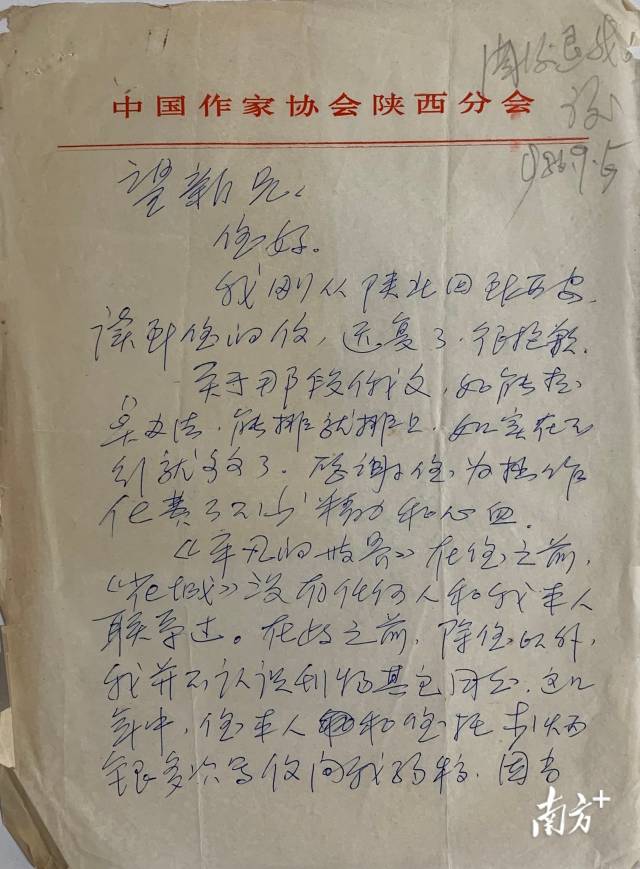 阅后退我。
1986.9.5
中国作家协会陕西分会
望新兄:
您好。
我刚从陕北回到西安,
读到您的信,迟复了,很抱歉。
关于那段俄文,如能想
点办法,能排就排上,如实在不
行就算了。感谢您为拙作
化费了不少精力和心血。
《平凡的世界》在您之前,
《花城》没有任何人和我本人
联系过。在此之前,除您以外,
我并不认识刊物其它同志。这几
年中,您本人和您托
银多次写信向我约稿,因当
南方+